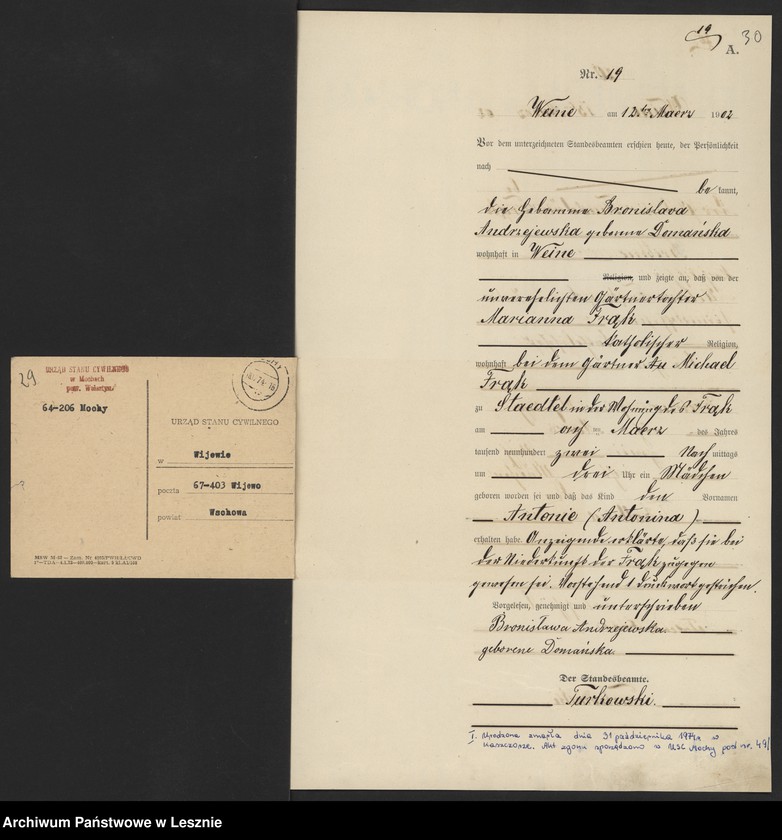 19
30
A.
Nr. 19
Weine am 12ten Maerz 1902
Vor dem unterzeichneten Standesbeamten erschien heute, der Persönlichkeit
nach
be kannt,
die Hebamme Bronislava
Andrzejewska geborene Domańska
wohnhaft in Weine
Religion, und zeigte an, daß von der
unverehelichten Gärtnertochter
Marianna Frąk
katholischer Religion,
wohnhaft bei dem Gärtner Michael
Frąk
zu Staedtel in der Wohnung des Frąk
am acht Maerz des Jahres
tausend neunhundert zwei Nach mittags
um drei Uhr ein Mädchen
geboren worden sei und daß das Kind den Vornamen
Antonie (Antonina)
erhalten habe. Anzeigende erklärte, daß sie bei
der Niederkunft der Frąk zugegen
gewesen sei. Vorstehend 1 Druckwort gestrichen.
Vorgelesen, genehmigt und unterschrieben
Bronisława Andrzejewska
geborene Domańska.
Der Standesbeamte.
Turkowski.
I. Urodzona zmarła dnia 31 października 1974r w
Kaszczorze. Akt zgonu sporządzono w USC Mochy pod nr. 49/
29
URZĄD STANU CYWILNEGO
w Mochach
pow. Wolsztyn
64-206 Mochy
URZĄD STANU CYWILNEGO
w Wijewie
poczta 67-403 Wijewo
powiat Wschowa
Archiwum Państwowe w Lesznie